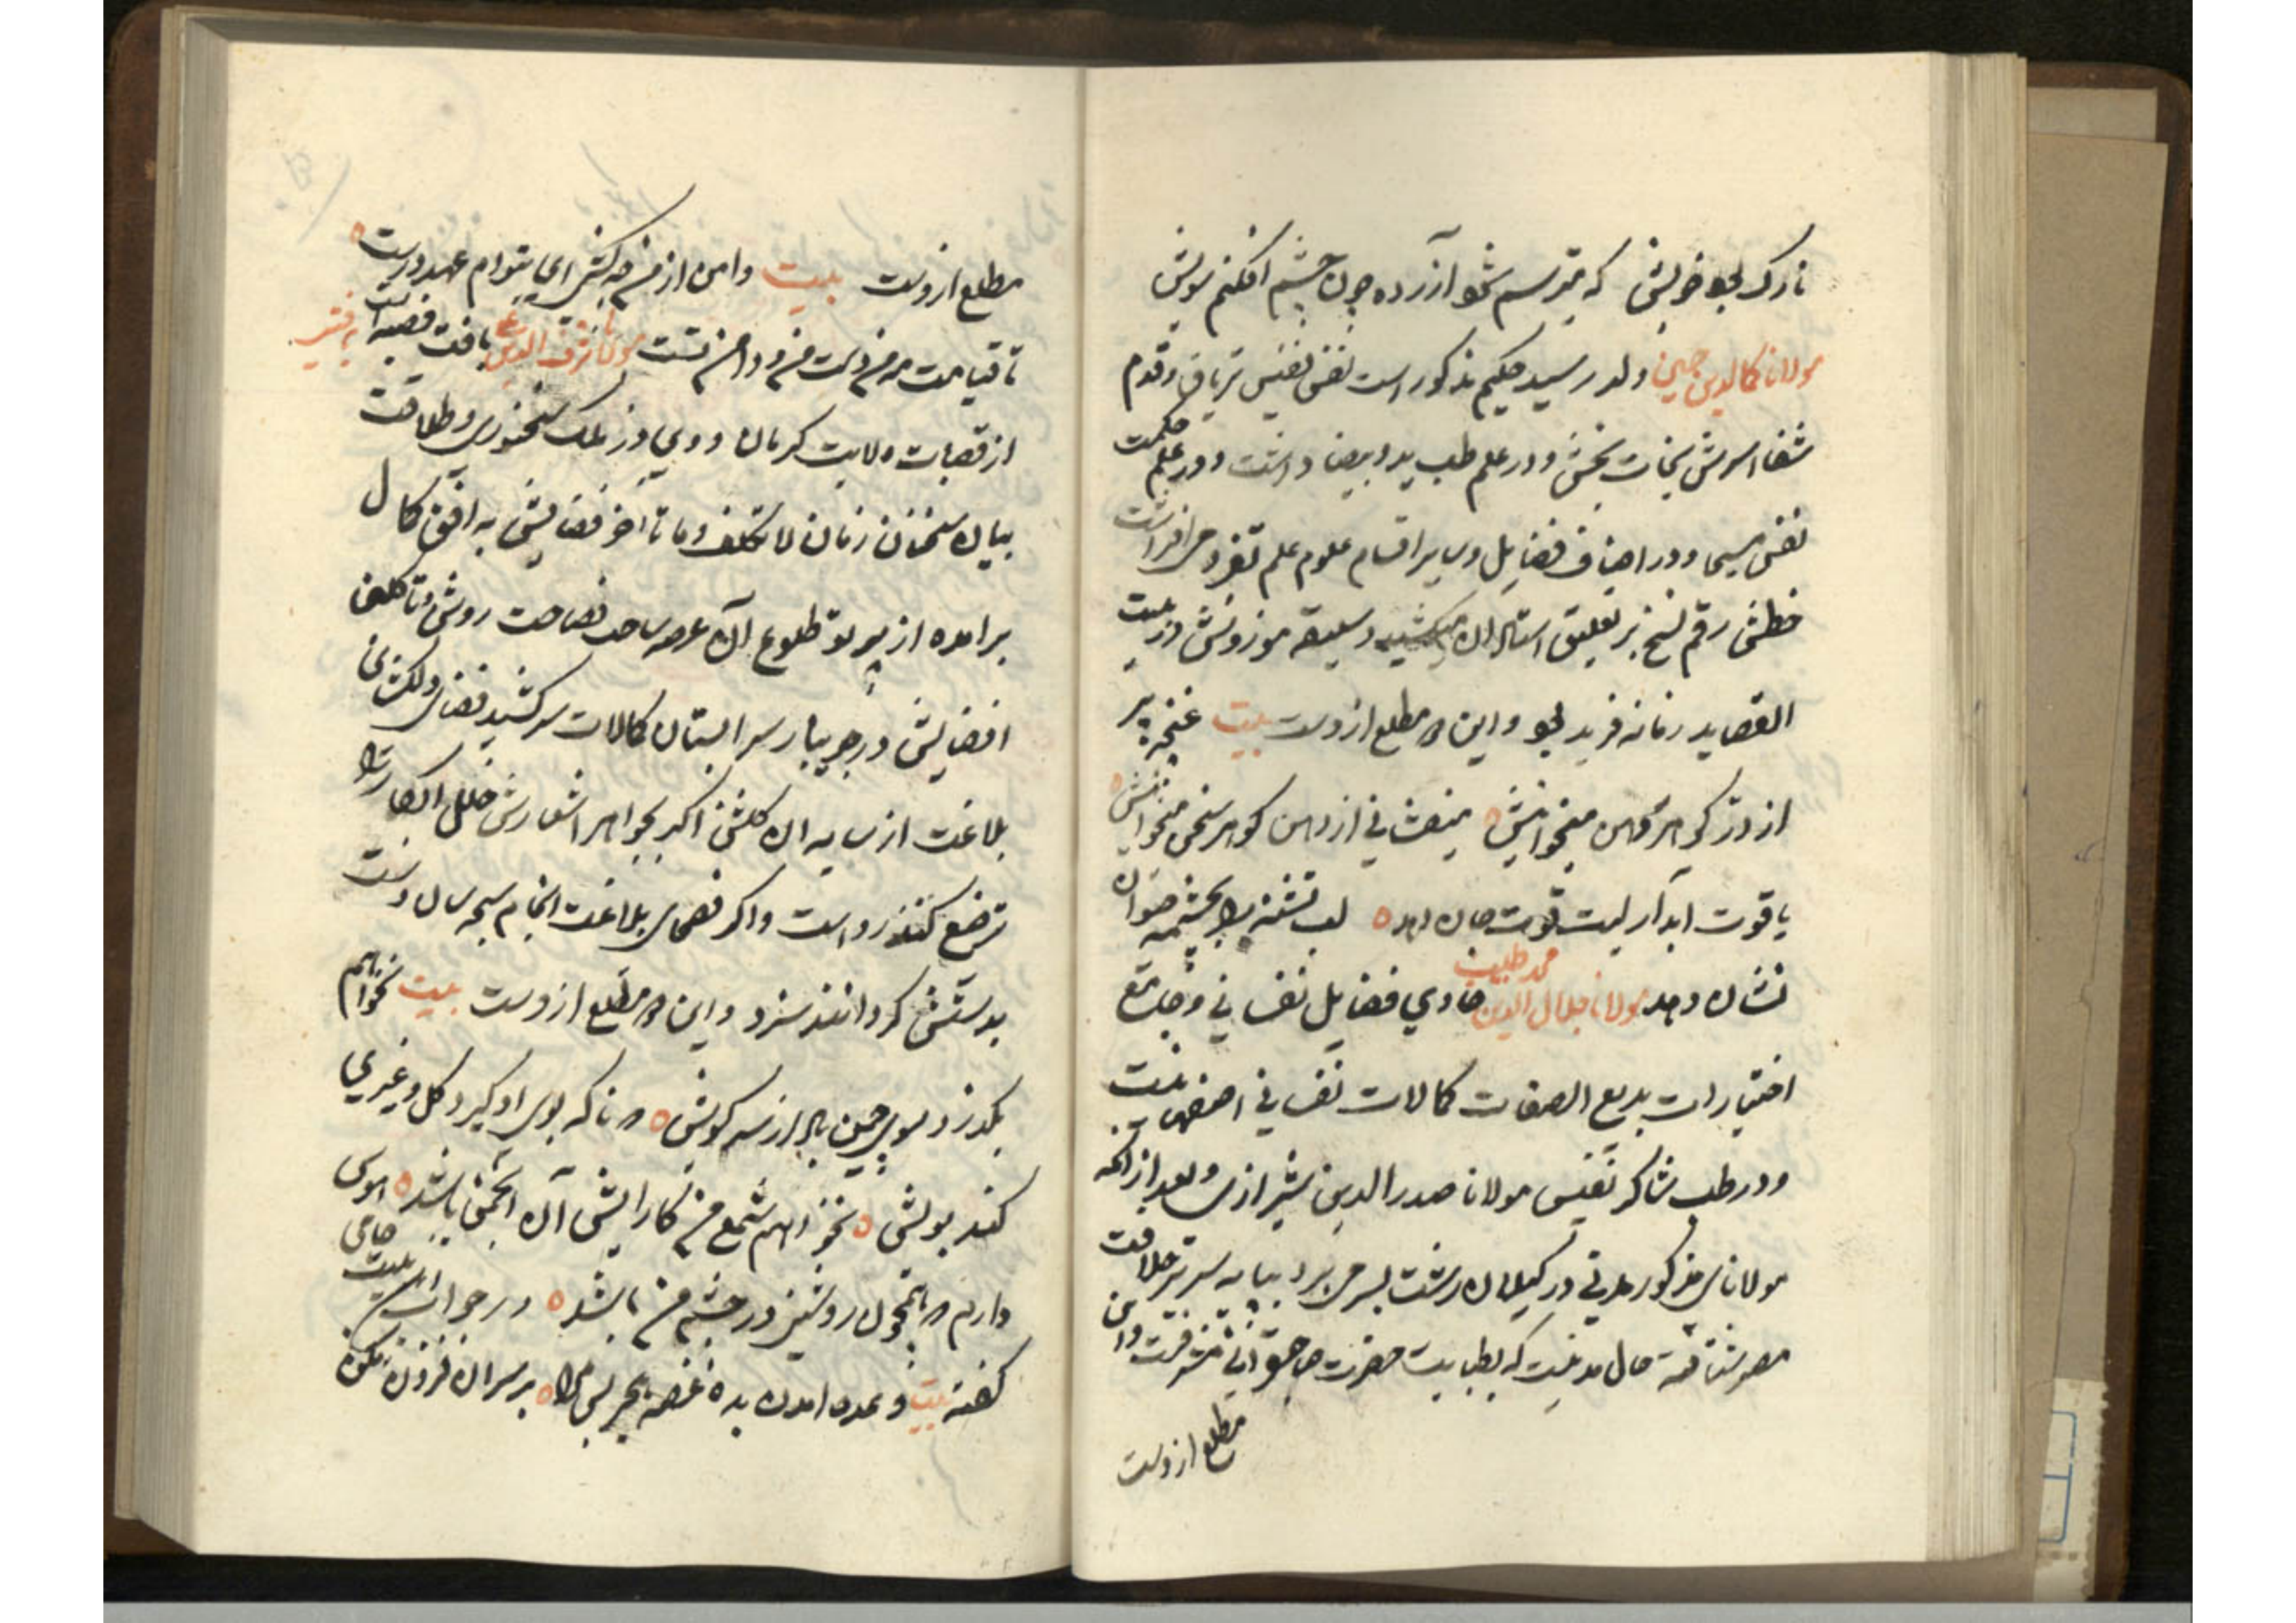 نازک بود خویش که میترسم شود آزرده چون چشم افکنم سویش
مولانا کمال الدین حسین ولد رسید حکیم مذکور است نفس نفیس تریاق و قدوم
شفا اسرش نجات بخش و در علم طب ید و بیضا داشت و در علم حکمت
نفس مسیحا و در اصناف فضایل و سایر اقسام علوم علم تفرد می افراشت
خطش رقم نسخ بر تعلیق استادان میکشید و سلیقه موزونش در بیت
القصاید زمانه فرید بود و این مطلع از وست بیت غنچه پر
از در گوهر دهن میخوانمش منفشانی از دهن گوهر سخن میخوانمش
یاقوت آبدار لبت قوت جان دهد لب تشنه را بچشمه حیوان
نشان دهد مولانا جلال الدین محمد طبیب حاوی فضایل نفسانی و جامع
اختیارات بدیع الصفات کمالات نفسانی اصفهانیست
و در طب شاگرد نفیس مولانا صدر الدین شیرازی و بعد از آنکه
مولانای مذکور مدتی در گیلان رشت بسر می برد بپایه سریر خلافت
مصیر شتافته حال مدتیست که بطبابت حضرت صاحبقرانی مشرفست و این
مطلع از وست
مطلع از وست بیت دامن از من چه کشی ای بتو ام عهد درست
تا قیامت من و دست من و دامن تست مولانا شرف الدین علی بافقی بافت قصبه ایست
از قصبات ولایت کرمان و وی در ملک سخنوری و طلاقت
بیان سخندان زمان لاتکلف و ما تا اختر فضایلش به افق کمال
برآمده از پرتو طلوع آن عرصه ساحت فصاحت روشن و تا گلبن
افضالش در جویبار سرابستان کمالات سر کشید فضای دلکشای
بلاغت از سایه آن گلشن اگر بجواهر اشعارش حلل ابکار را
ترصیع کنند رواست و اگر فصحای بلاغت انجام سبحه سان دست
بدستش گردانند سزد و این مطلع از وست بیت نخواهم
بگذرد سوی چمن باد از سر کویش که بوی او گیرد گل و غیری
کند بویش نخواهم شمع من کارایش آن انجمن باشد هوس
دارم که همچون روشنی در چشم من باشد و در جواب این بیت جامی
گفته بیت وعده آمدن بده غصه هجر بس مرا بر سر آن فزون مکن